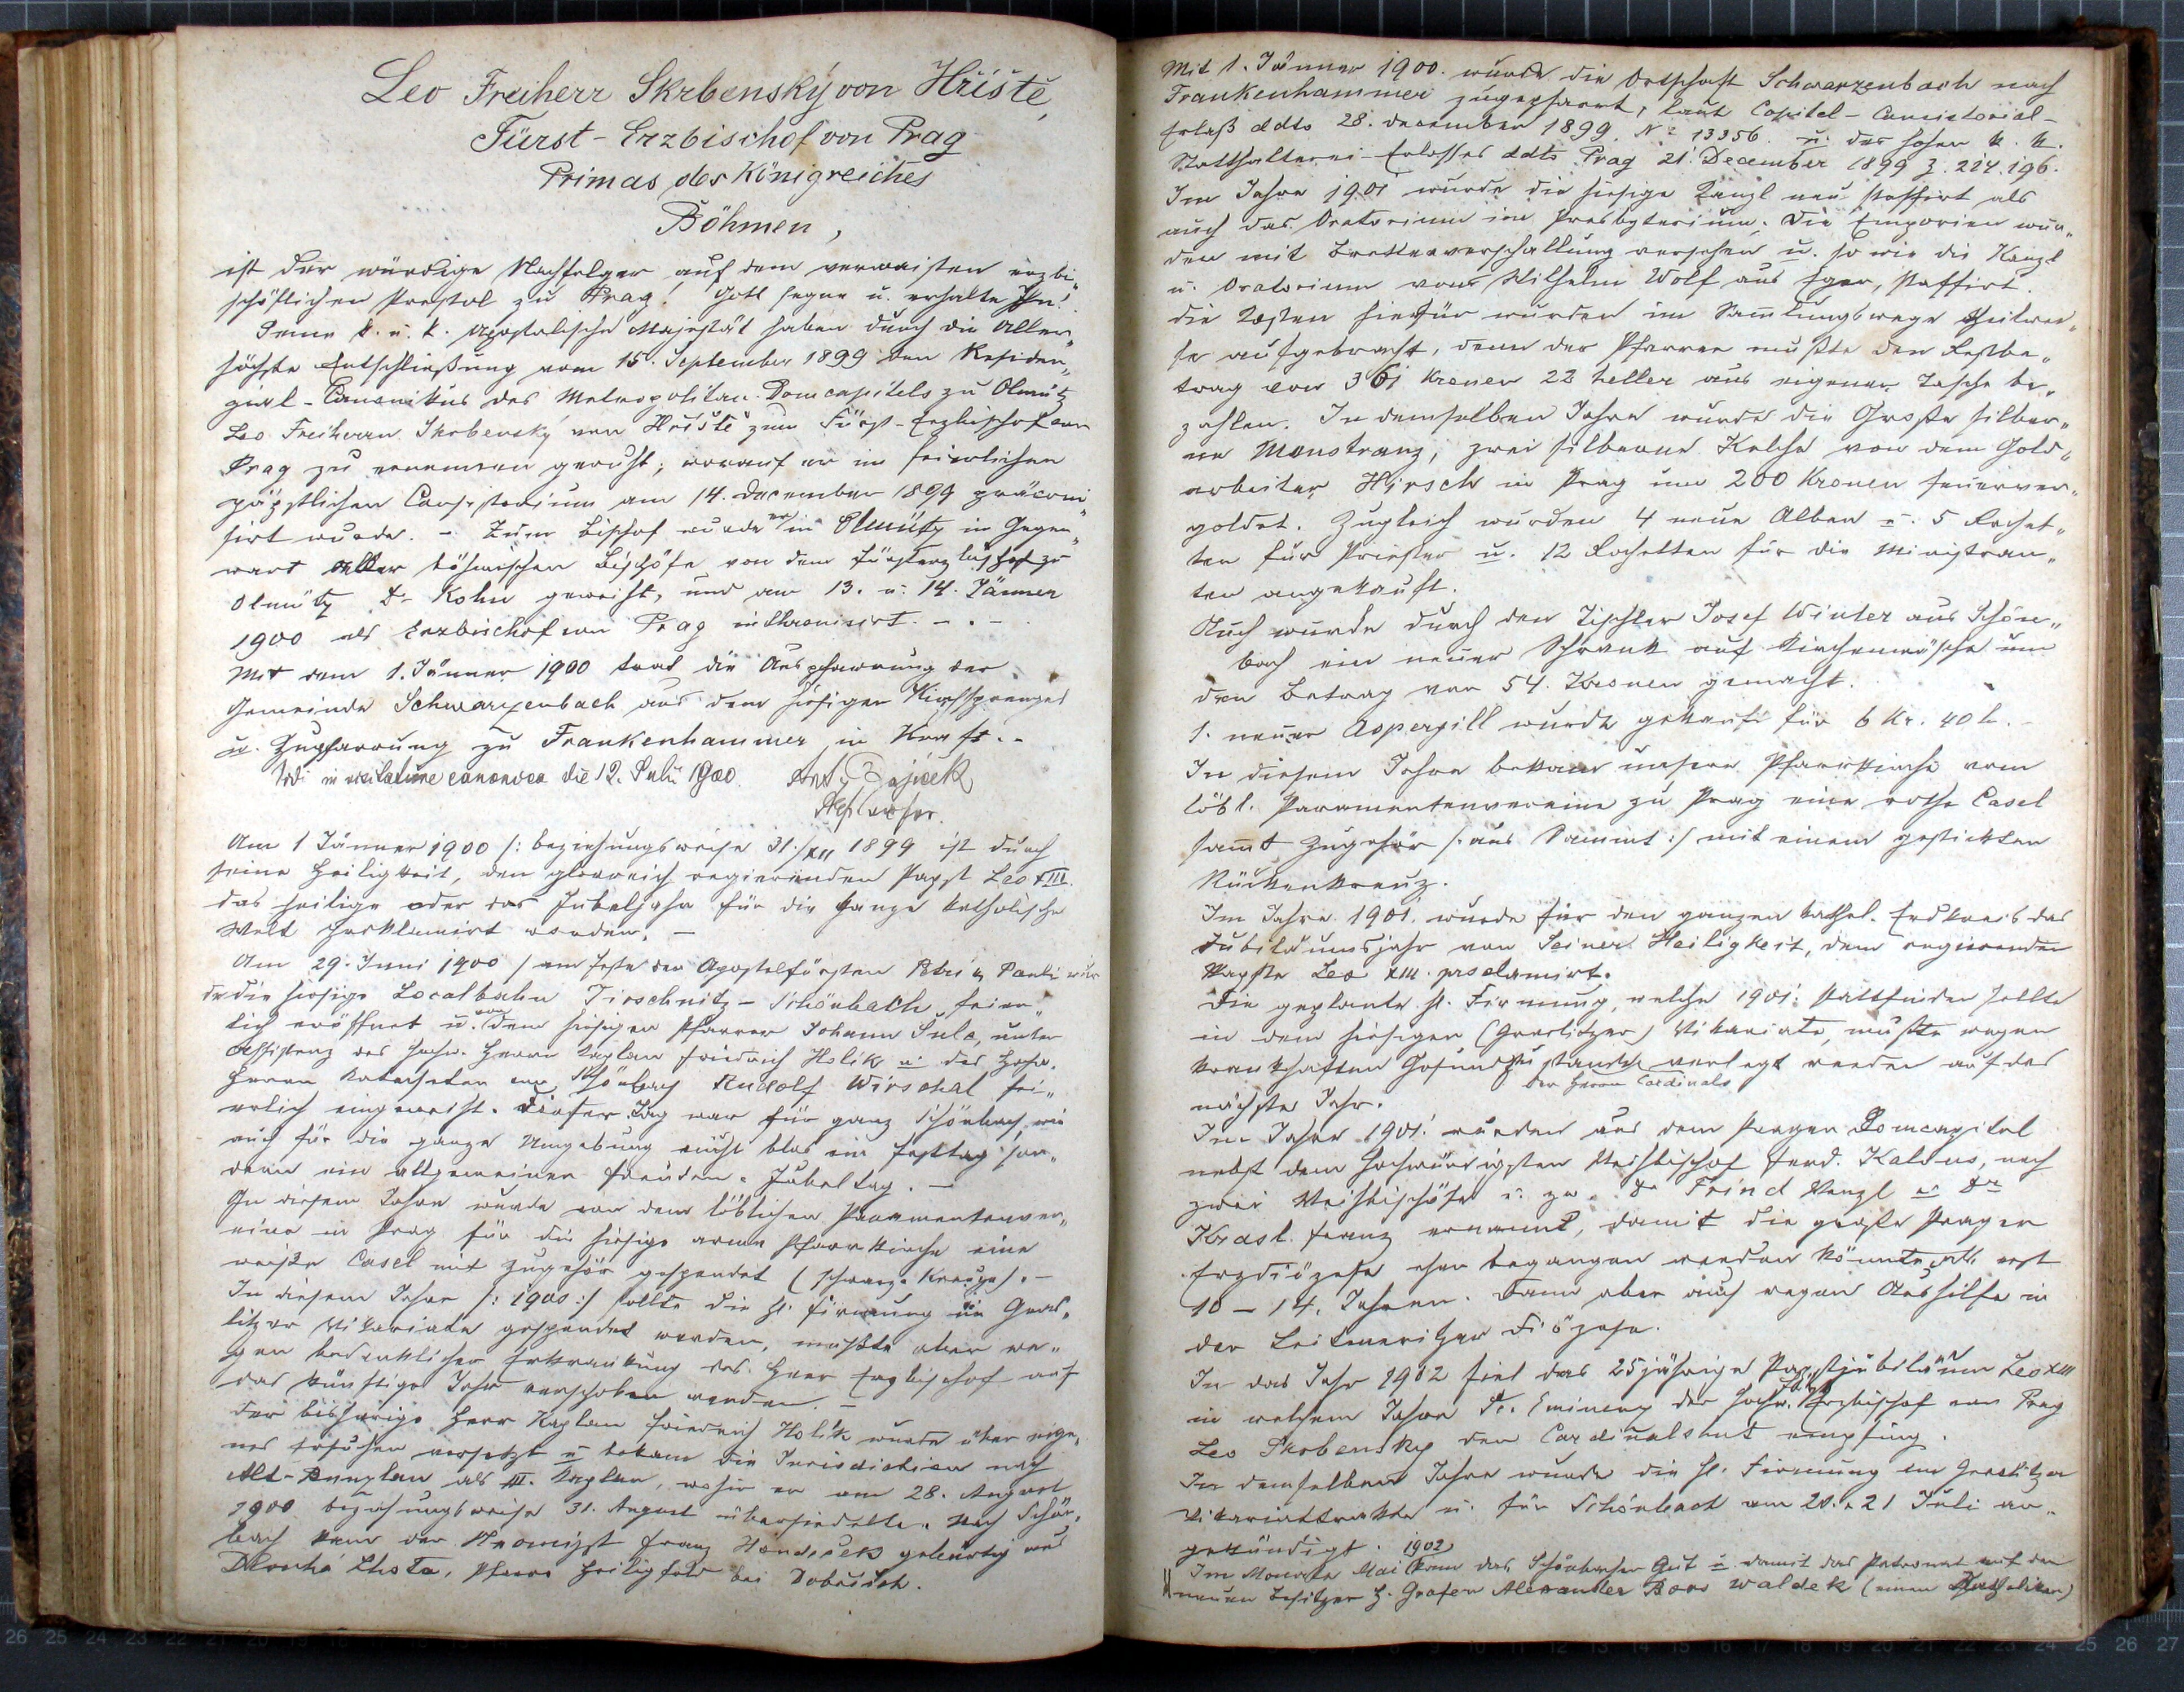 Leo Freiherr Skrbenský von Hříště,
Fürst-Erzbischof von Prag
Primas des Königreiches
Böhmen,
ist der würdige Nachfolger auf dem verwaisten erzbi„
schöflichen Prestol zu Prag! Gott segne u. erhalte Ihn!
Seine k. u. k. Apostolische Majestät haben durch die Aller„
höchste Entschließung vom 15. September 1899 den Residen„
zial-Canonikus des Metropolitan-Domcapitels zu Olmütz
Leo Freiherrn Skrbenský von Hříště zum Fürst-Erzbischof von
Prag zu ernennen geruht; worauf er im feierlichen
päpstlichen Consistorium am 14. December 1899 präconi„
sirt wurde. – Zum Bischof wurde er in Olmütz in Gegen„
wart aller böhmischen Bischöfe von dem Fürsterzbischof zu
Olmütz Dr Kohn geweiht, und am 13. u. 14. Jänner
1900 als Erzbischof von Prag inthronisirt. – . –
Mit dem 1. Jänner 1900 trat die Auspfarrung der
Gemeinde Schwarzenbach aus dem hiesigen Kirchsprengel
u. Zupfarrung zu Frankenhammer in Kraft. –
Vidi in visitatione canonica die 12. Juli 1900. Ant. Zajíček
Am 1 Jänner 1900 /: beziehungsweise 31./XII 1899 ist durch
seine Heiligkeit, den glorreich regierenden Papst Leo XIII.
das heilige oder das Jubeljahr für die ganze katholische
Welt proklamirt worden. –
Am 29. Juni 1900 / am Feste der Apostelfürsten Petri u Pauli wur
de die hiesige Localbahn Tirschnitz – Schönbach feier„
lich eröffnet u. von dem hiesigen Pfarrer Johann Šulc, unter
Assistenz des hochw. Herrn Kaplan Friedrich Holík u. des hochw.
Herrn Katecheten von Schönbach Rudolf Wirschal fei„
erlich eingeweiht. Dieser Tag war für ganz Schönbach, wie
auch für die ganze Umgebung nicht blos ein Festtag son„
dern ein allgemeiner Freuden- Jubeltag. –
In diesem Jahre wurde von dem löblichen Paramentenver„
eine in Prag für die hiesige arme Pfarrkirche eine
weiße Casel mit Zugehör gespendet (schwarze Kreuze). –
In diesem Jahre /: 1900 :/ sollte die hl. Firmung im Gras„
litzer Vikariate gespendet werden, mußte aber we„
gen bedenklicher Erkrankung des Herr Erzbischof auf
das künftige Jahr verschoben werden. –
Der bisherige Herr Kaplan Friedrich Holík wurde über eige„
nes Ersuchen versetzt u bekam die Jurisdiction nach
Alt-Bunzlau als III. Kaplan, wohin er am 28. August
1900 beziehungsweise 31. August übersiedelte. Nach Schön„
bach kam der Neomyst Franz gebürtig aus
Dlouhá Lhota, Pfarre Heiligfeld bei Dobřisch.
Mit 1. Jänner 1900. wurde die Ortschaft Schwarzenbach nach
Frankenhammer zugepfarrt, laut Capitel-Consistorial-
Erlaß ddto 28. December 1899. No 13356. u. des hohen k. k.
Statthalterei-Erlasses ddto Prag 21. December 1899 Z. 214.196.
Im Jahre 1901 wurde die hiesige Kanzl neu staffirt als
auch das Oratorium im Presbyterium; die Emporien wur„
den mit Bretterverschallung versehen u. so wie die Kanzl
u. Oratorium vom Wilhelm Wolf aus Eger, staffirt.
Die Kosten hiefür wurden im Sammlungswege theilwei„
se aufgebracht, denn der Pfarrer mußte den Restbe„
trag von 361 Kronen 22 heller aus eigener Tasche be„
zahlen. In demselben Jahre wurde die Große silber„
ne Monstranz, zwei silberne Kelche von dem Gold„
arbeiter Hirsch in Prag um 200 Kronen feuerver„
goldet. Zugleich wurden 4 neue Alben u. 5 Rochet„
ten für Priester u. 12 Rochetten für die Ministran„
ten angekauft.
Auch wurde durch den Tischler Josef Winter aus Schön„
bach ein neuer Schrank auf Kirchenwäsche um
den Betrag von 54. Kronen gemacht.
1. neuer Aspergill wurde gekauft für 6 Kr. 40 h. –
In diesem Jahre bekam unsere Pfarrkirche vom
löbl. Paramentenvereine zu Prag eine rothe Casel
sammt Zugehör /: aus Sammt :/ mit einem gestickten
Rückenkreuz.
Im Jahre 1901. wurde für den ganzen kathol. Erdkreis das
Jubiläumsjahr von Seiner Heiligkeit, dem regierenden
Papste Leo XIII. proclamirt.
Die geplante hl. Firmung, welche 1901. stattfinden sollte
in dem hiesigen (Graslitzer) Vikariate, mußte wegen
krankhaften Gesundzustandes verlegt werden auf das
des Herrn Cardinals
nächste Jahr.
Im Jahre 1901. wurden aus dem Prager Domcapitel
nebst dem Hochwürdigsten Weihbischof Ferd. Kalous, noch
zwei Weihbischöfe u. zw. Dr Frind Wenzl u Dr
Krasl. Franz ernannt, damit die große Prager
Erzdiözese eher begangen werden könnte, als erst
10 – 14. Jahren. Dann aber auch wegen Aushilfe in
der Leitmeritzer Diözese.
In das Jahr 1902 fiel das 25jährige Papstjubiläum Leo XIII
in welchem Jahre Se. Eminenz der hochw. Erzbischof von Prag
Leo Skrbensky den Cardinalshut empfing.
In demselben Jahre wurde die hl. Firmung im Graslitzer
Vikariatbezirke u. für Schönbach am 20. u 21 Juli an„
gekündigt. 1902
Im Monate Mai kam das Schönbacher Gut u damit das Patronat auf den
neuen Besitzer H. Grafen Alexander Boos Waldek (einen Katholiken)